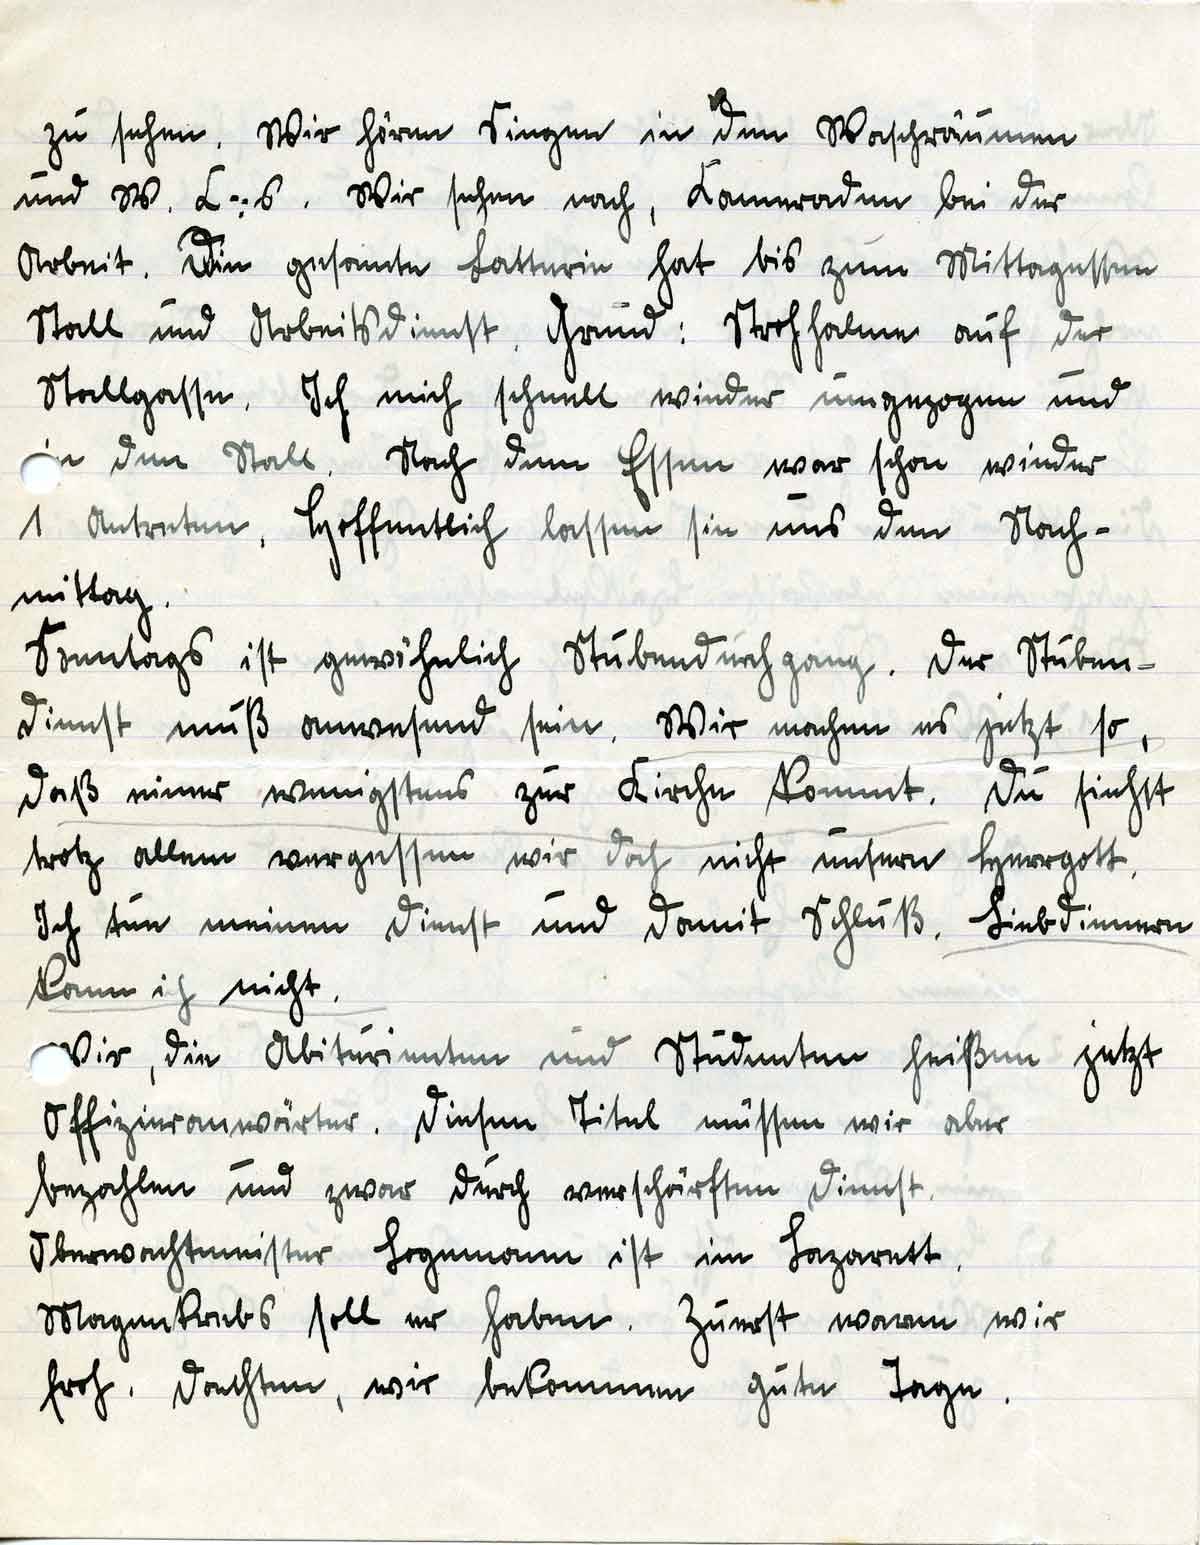 zu sehen. Wir hören Singen in den Waschräumen
und W. C-s. Wir sehen nach, Kameraden bei der
Arbeit. Die gesamte Batterie hat bis zum Mittagessen
Stall und Arbeitsdienst. Grund: Strohhalme auf der
Stallgasse. Ich mich schnell wieder umgezogen und
in den Stall. Nach dem Essen war schon wieder
1 Antreten. Hoffentlich lassen sie uns den Nach-
mittag.
Sonntags ist gewöhnlich Stubendurchgang. Der Stuben-
dienst muß anwesend sein. Wir machen es jetzt so,
daß einer wenigstens zur Kirche kommt. Du siehst
trotz allem vergessen wir doch nicht unsern Herrgott.
Ich tue meinen Dienst und damit Schluß. Liebdienern
kann ich nicht.
Wir, die Abiturienten und Studenten heißen jetzt
Offizieranwärter. Diesen Titel müssen wir aber
bezahlen und zwar durch verschärften Dienst.
Oberwachtmeister Hogemann ist im Lazarett.
Magenkrebs soll er haben. Zuerst waren wir
froh. Dachten, wir bekommen gute Tage.